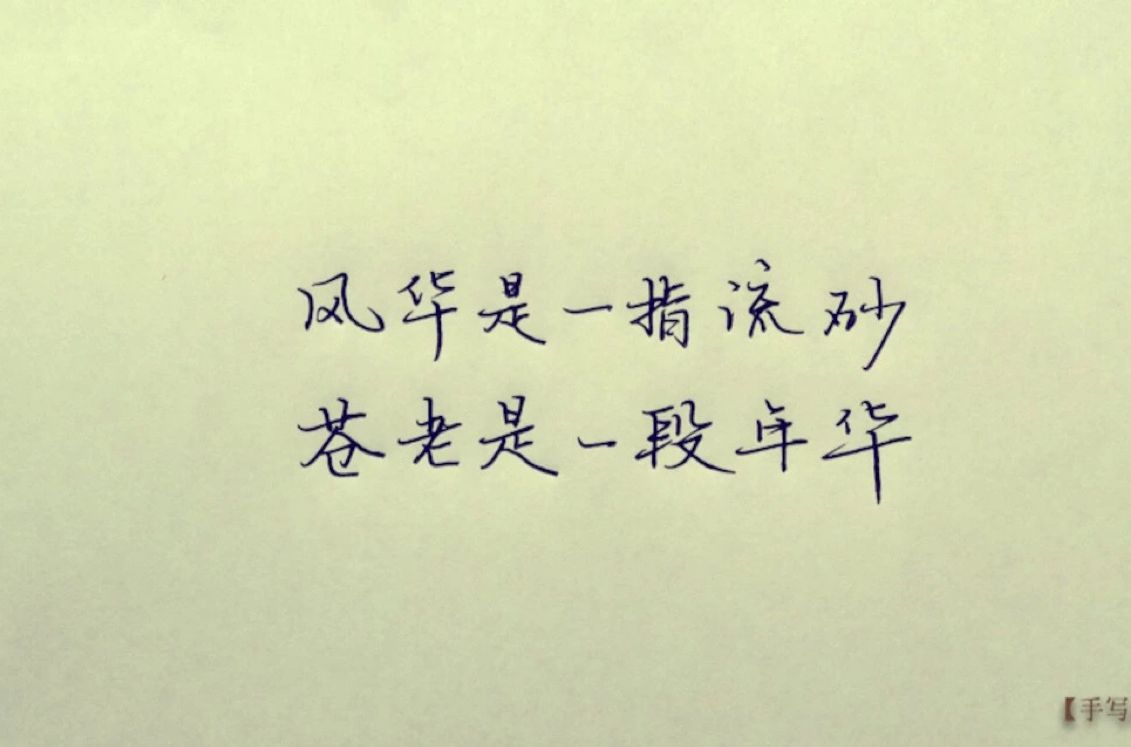 风华是一指流砂
苍老是一段年华
【手写